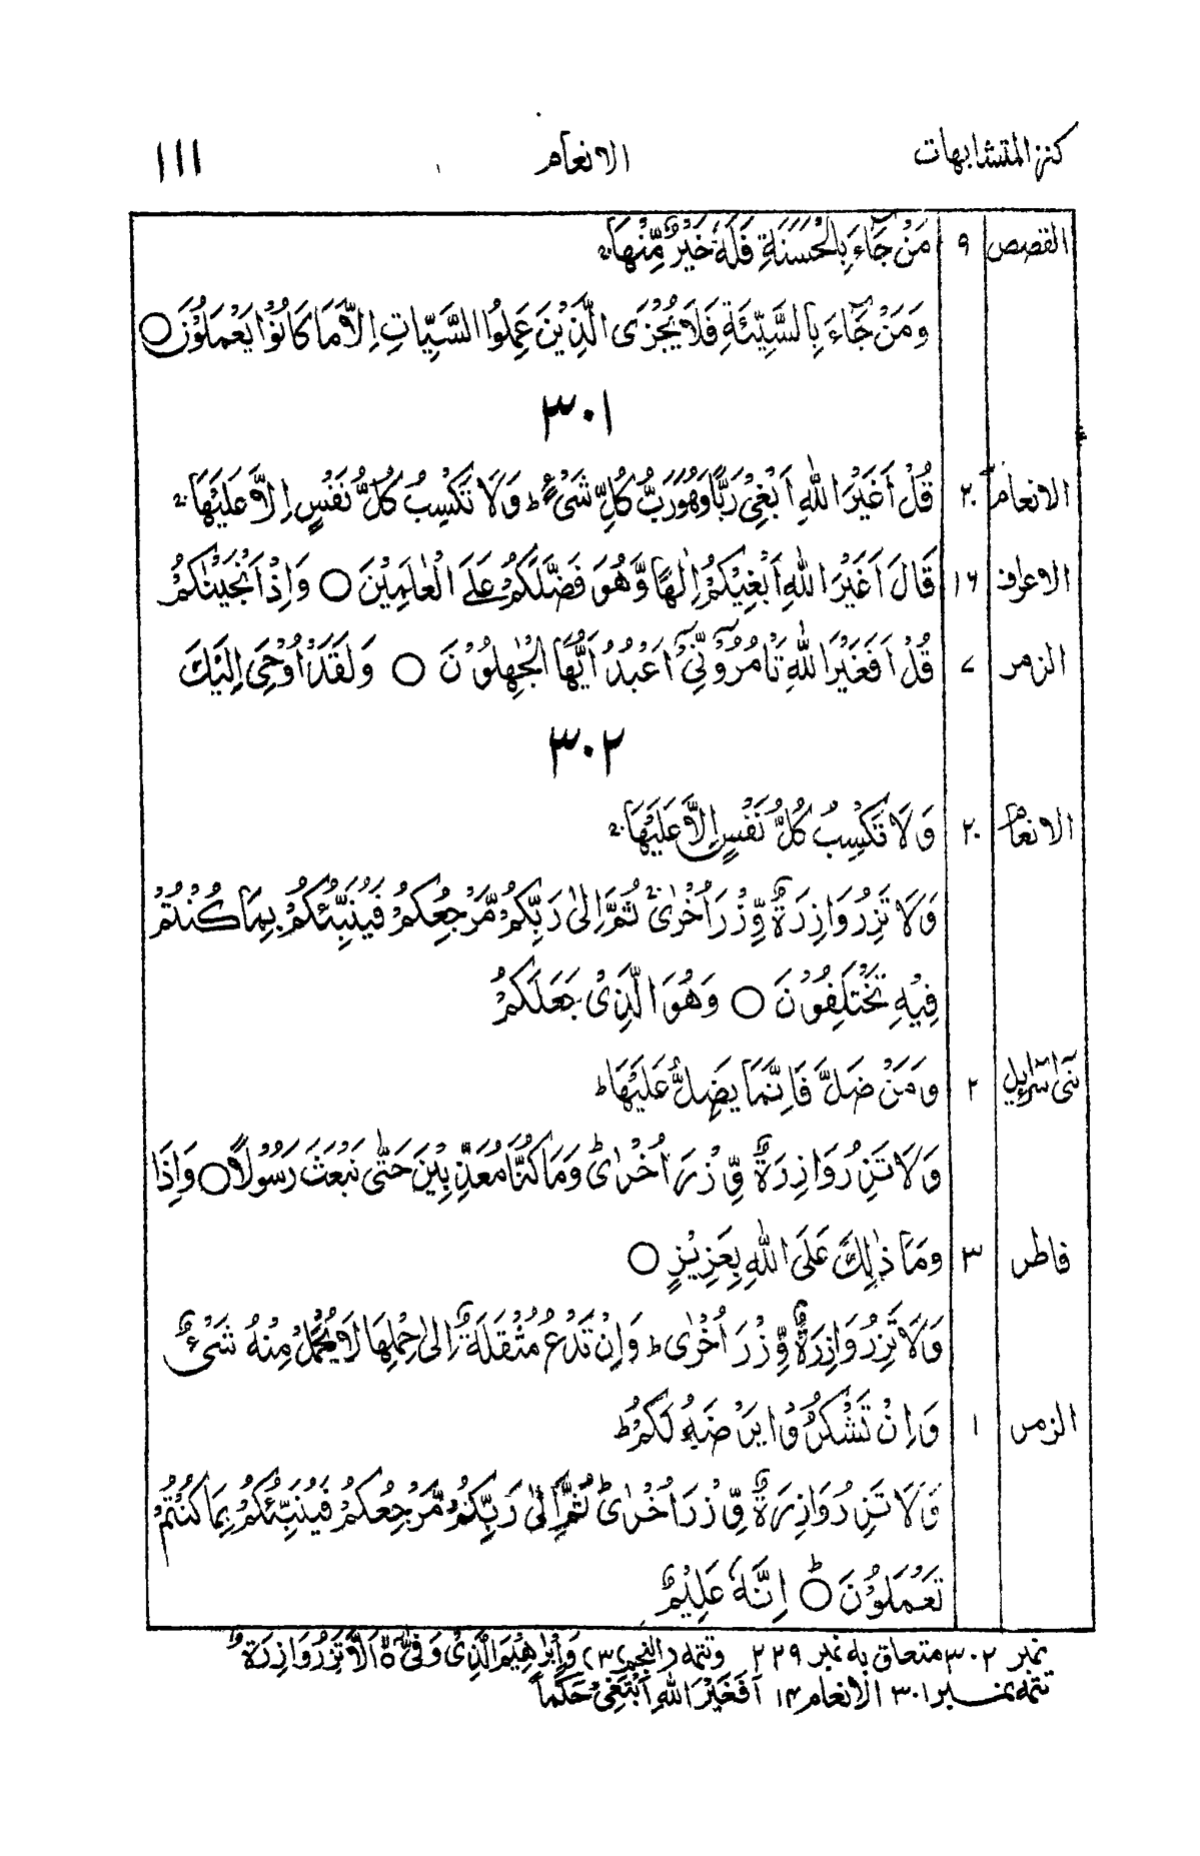 كنز المتشابهات الانعام ١١١
القصص ٩ مَنْ جَآءَ بِالْحَسَنَةِ فَلَهٗ خَيْرٌ مِّنْهَا ۚ
وَمَنْ جَآءَ بِالسَّيِّئَةِ فَلَا يُجْزَى الَّذِيْنَ عَمِلُوا السَّيِّاٰتِ اِلَّا مَا كَانُوْا يَعْمَلُوْنَ ○
٣٠١
الانعام ٢٠ قُلْ اَغَيْرَ اللّٰهِ اَبْغِيْ رَبًّا وَّهُوَ رَبُّ كُلِّ شَيْءٍ ؕ وَلَا تَكْسِبُ كُلُّ نَفْسٍ اِلَّا عَلَيْهَا ۚ
الاعراف ١٦ قَالَ اَغَيْرَ اللّٰهِ اَبْغِيْكُمْ اِلٰهًا وَّهُوَ فَضَّلَكُمْ عَلَى الْعٰلَمِيْنَ ○ وَاِذْ اَنْجَيْنٰكُمْ
الزمر ٧ قُلْ اَفَغَيْرَ اللّٰهِ تَاْمُرُوْٓنِّيْٓ اَعْبُدُ اَيُّهَا الْجٰهِلُوْنَ ○ وَلَقَدْ اُوْحِيَ اِلَيْكَ
٣٠٢
الانعام ٢٠ وَلَا تَكْسِبُ كُلُّ نَفْسٍ اِلَّا عَلَيْهَا ۚ
وَلَا تَزِرُ وَازِرَةٌ وِّزْرَ اُخْرٰى ۚ ثُمَّ اِلٰى رَبِّكُمْ مَّرْجِعُكُمْ فَيُنَبِّئُكُمْ بِمَا كُنْتُمْ
فِيْهِ تَخْتَلِفُوْنَ ○ وَهُوَ الَّذِيْ جَعَلَكُمْ
بنی اسرآءیل ٢ وَمَنْ ضَلَّ فَاِنَّمَا يَضِلُّ عَلَيْهَا ؕ
وَلَا تَزِرُ وَازِرَةٌ وِّزْرَ اُخْرٰى ؕ وَمَا كُنَّا مُعَذِّبِيْنَ حَتّٰى نَبْعَثَ رَسُوْلًا ○ وَاِذَا
فاطر ٣ وَمَا ذٰلِكَ عَلَى اللّٰهِ بِعَزِيْزٍ ○
وَلَا تَزِرُ وَازِرَةٌ وِّزْرَ اُخْرٰى ؕ وَاِنْ تَدْعُ مُثْقَلَةٌ اِلٰى حِمْلِهَا لَا يُحْمَلْ مِنْهُ شَيْءٌ
الزمر ١ وَاِنْ تَشْكُرُوْا يَرْضَهُ لَكُمْ ؕ
وَلَا تَزِرُ وَازِرَةٌ وِّزْرَ اُخْرٰى ؕ ثُمَّ اِلٰى رَبِّكُمْ مَّرْجِعُكُمْ فَيُنَبِّئُكُمْ بِمَا كُنْتُمْ
تَعْمَلُوْنَ ○ؕ اِنَّهٗ عَلِيْمٌ
نمبر ٣٠٢ متعلق به نمبر ٢٢٩ وتتمه (النجم ٣) وَاِبْرٰهِيْمَ الَّذِيْ وَفّٰى ۙ○ اَلَّا تَزِرُ وَازِرَةٌ
تتمه نمبر ٣٠١ الانعام ١٤ اَفَغَيْرَ اللّٰهِ اَبْتَغِيْ حَكَمًا